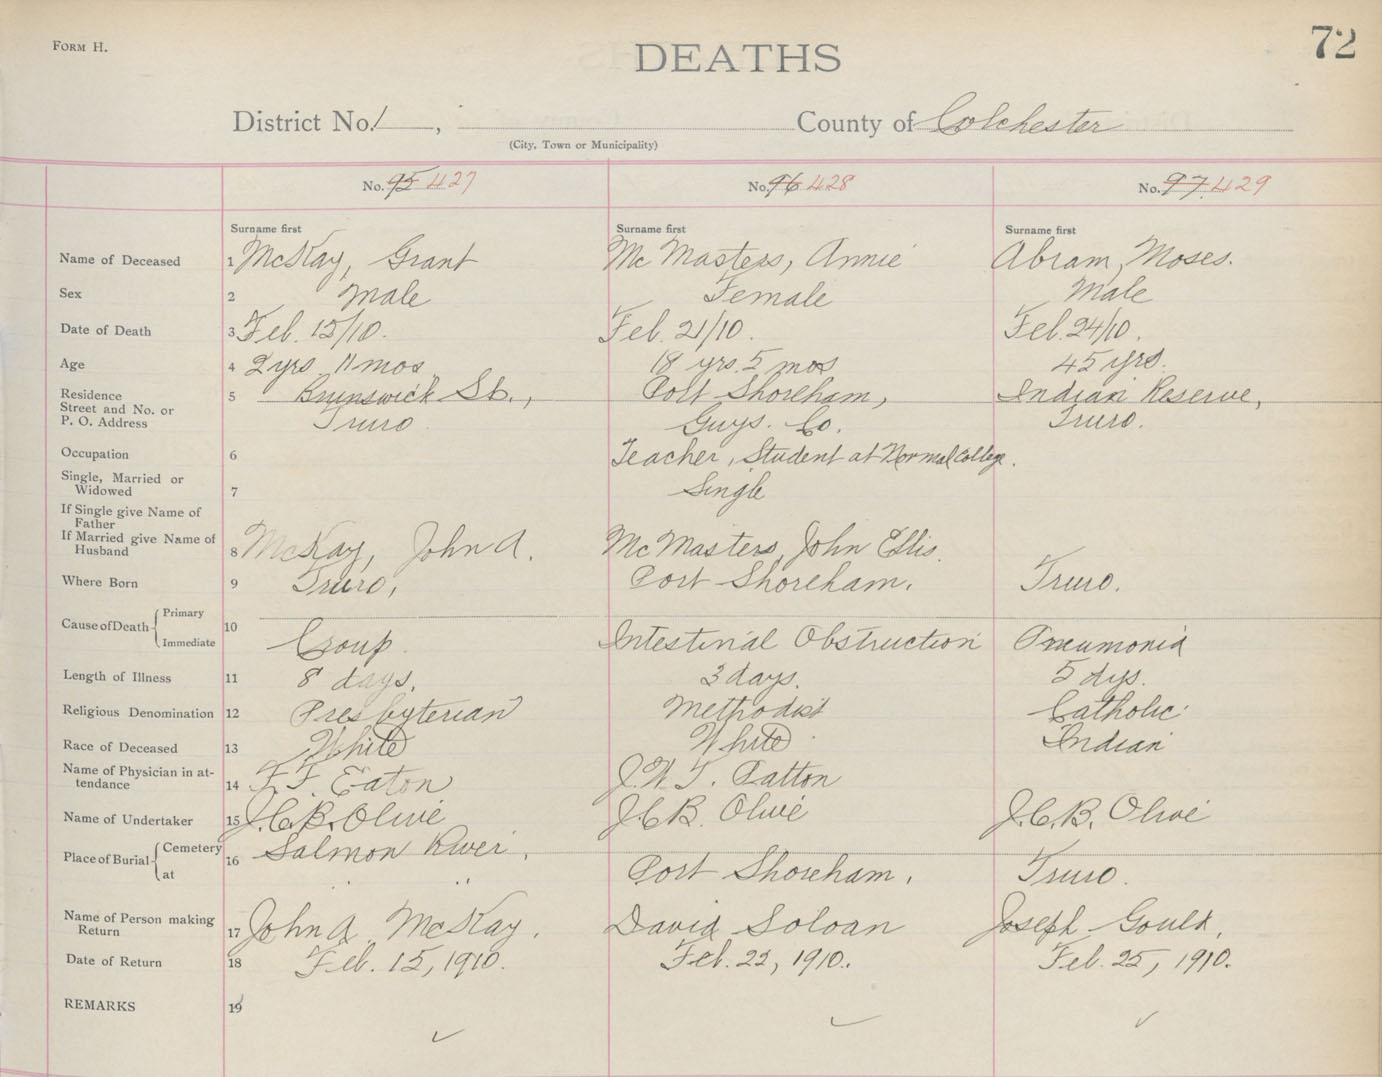 FORM H.
DEATHS
72
District No. 1, County of Colchester
(City, Town or Municipality)
No. 95 427 No. 96 428 No. 97. 429
Surname first Surname first Surname first
Name of Deceased 1 McKay, Grant Mc Masters, Annie Abram, Moses.
Sex 2 Male Female Male
Date of Death 3 Feb. 15/10. Feb. 21/10. Feb. 24/10.
Age 4 2 yrs. 11 mos. 18 yrs. 5 mos 45 yrs.
Residence 5 Brunswick St., Port Shoreham, Indian Reserve,
Street and No. or
P. O. Address Truro Guys. Co. Truro.
Occupation 6 Teacher, Student at Normal College.
Single, Married or
Widowed 7 Single
If Single give Name of
Father
If Married give Name of
Husband 8 McKay, John A. Mc Masters, John Ellis.
Where Born 9 Truro, Port Shoreham. Truro.
Cause of Death Primary 10
Immediate Croup. Intestinal Obstruction Pneumonia
Length of Illness 11 8 days. 3 days. 5 dys.
Religious Denomination 12 Presbyterian Methodist Catholic
Race of Deceased 13 White White Indian
Name of Physician in at-
tendance 14 F. F. Eaton J. W. T. Patton
Name of Undertaker 15 J. C. B. Olive J. C. B. Olive J. C. B. Olive
Place of Burial Cemetery 16 Salmon River.
at Port Shoreham. Truro.
Name of Person making
Return 17 John A McKay. David Soloan Joseph Gould.
Date of Return 18 Feb. 15, 1910. Feb. 22, 1910. Feb. 25, 1910.
REMARKS 19